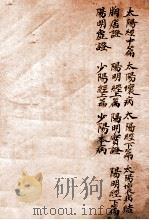 太陽經中篇 太陽壞病 太陽經下篇 太陽壞病結
胸痞證 陽明經上篇 陽明實證 陽明經下篇
陽明虛證 少陽經上篇 少陽本病